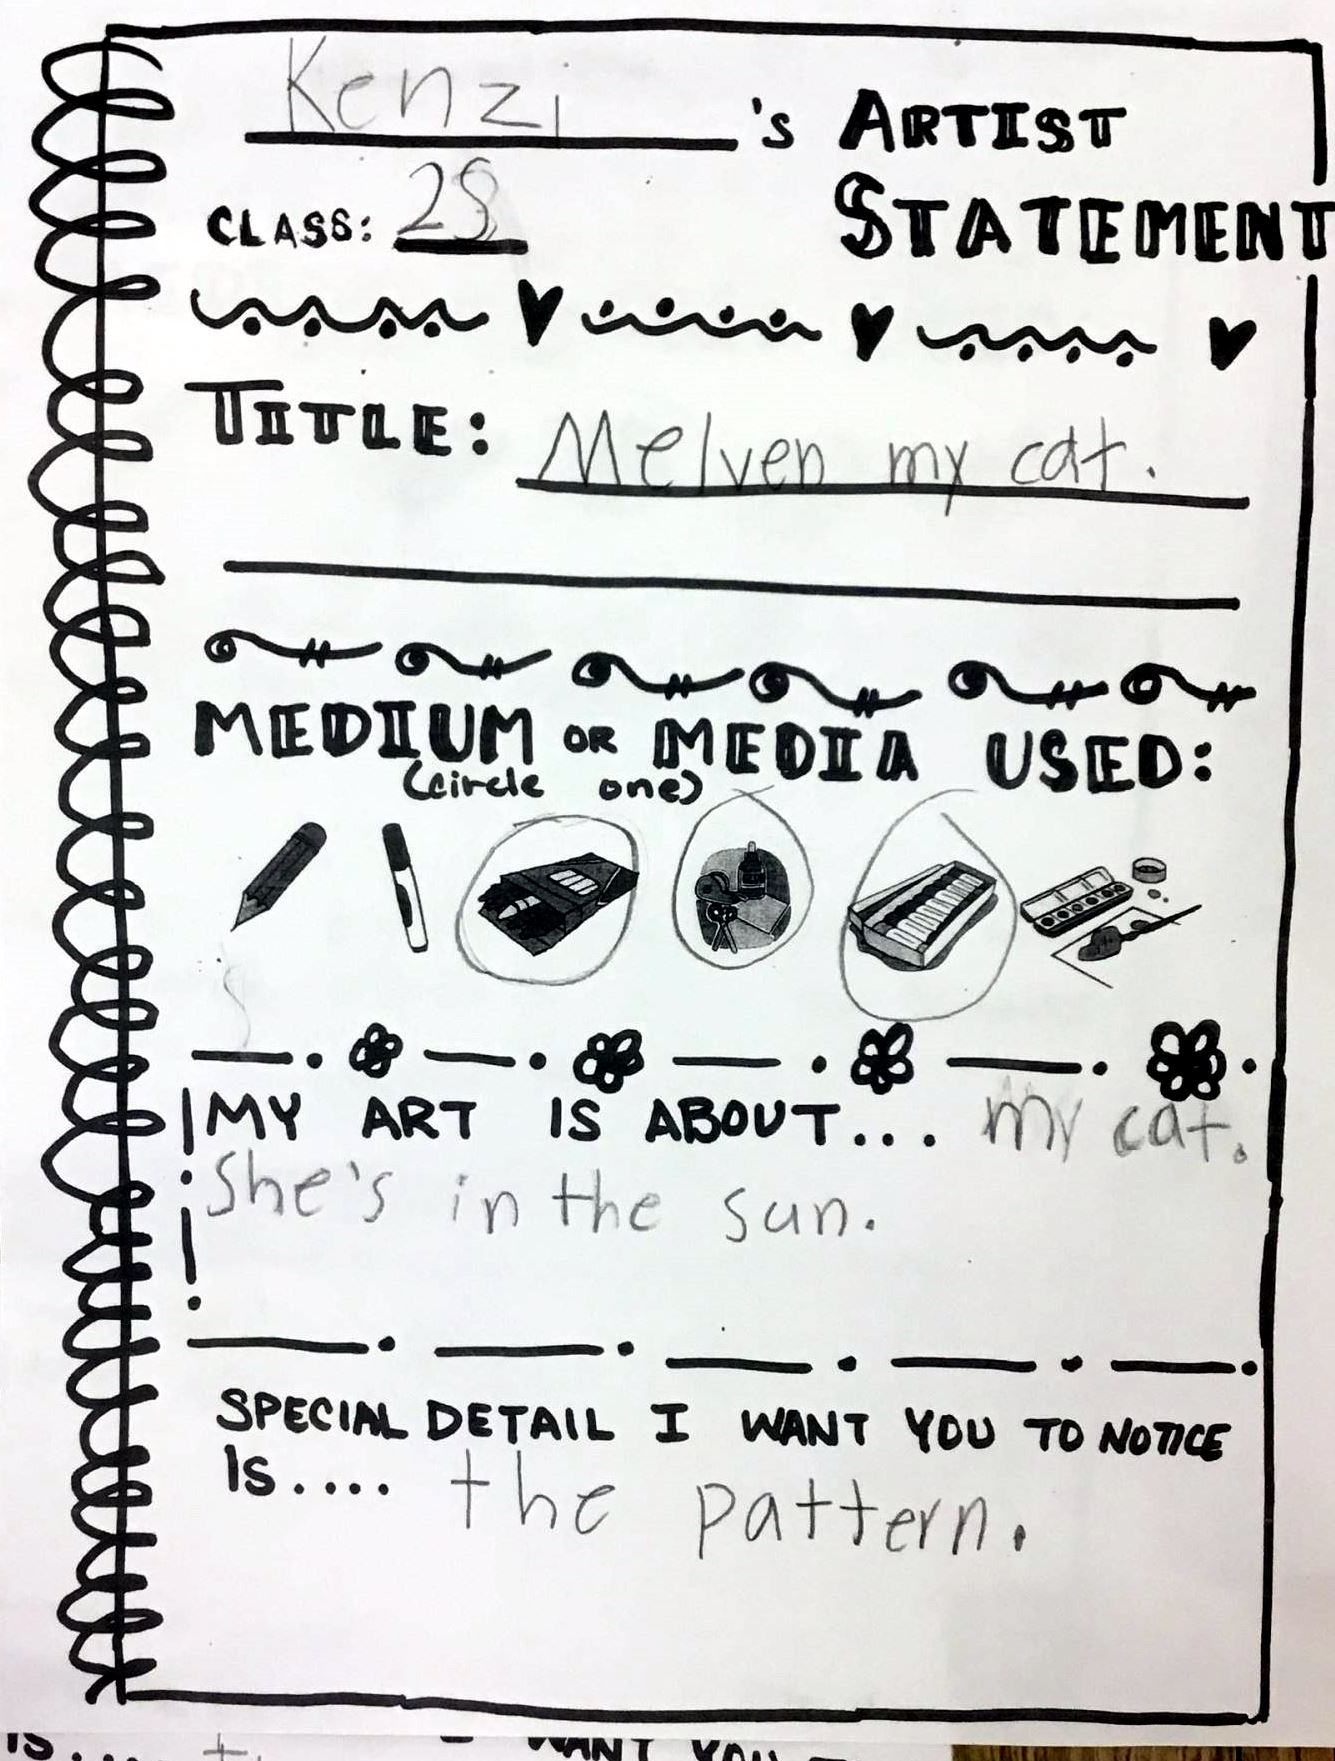 Kenzi 's ARTIST
CLASS: 2S STATEMENT
TITLE: Melven my cat.
MEDIUM OR MEDIA USED:
(circle one)
MY ART IS ABOUT... my cat.
She's in the sun.
SPECIAL DETAIL I WANT YOU TO NOTICE
IS.... the pattern.
IS.... WANT YOU